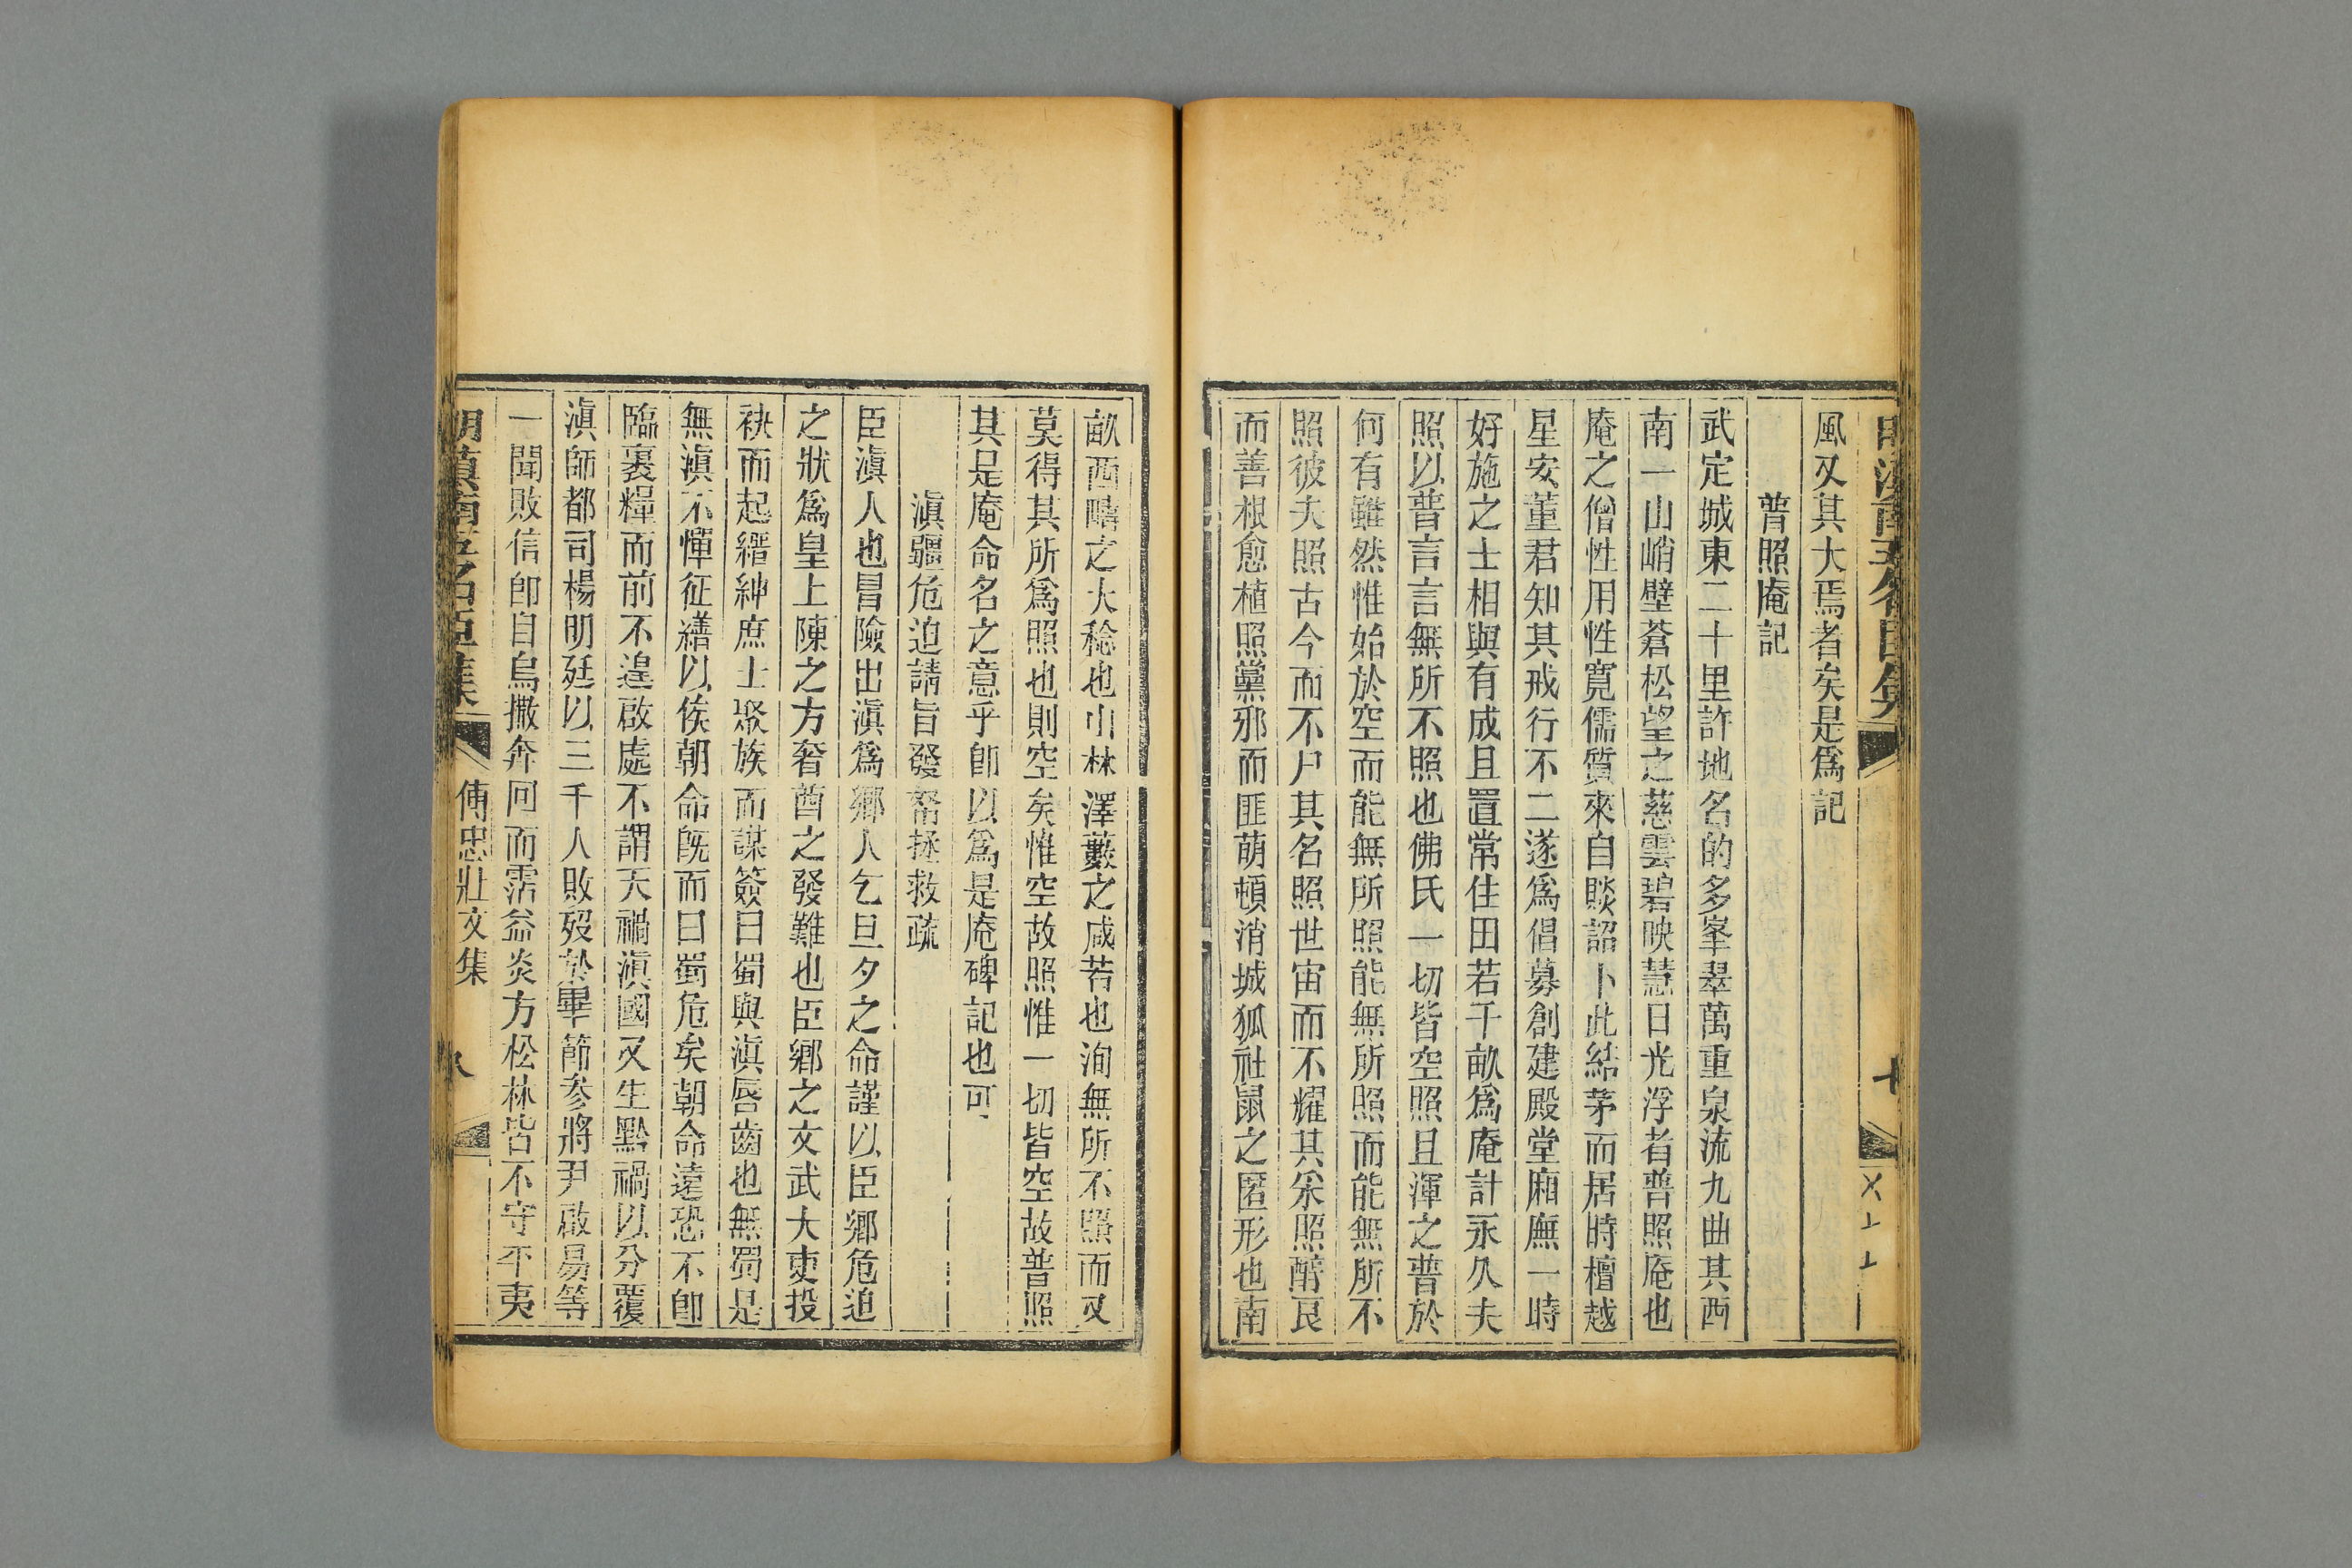 風又其大焉者矣是爲記
普照庵記
武定城東二十里許地名的多峯翠萬重泉流九曲其西
南一山峭壁蒼松望之慈雲碧映慧日光浮者普照庵也
庵之僧性用性寬儒質來自賧詔卜此結茅而居時檀越
星安董君知其戒行不二遂爲倡募創建殿堂廂廡一時
好施之士相與有成且置常住田若干畝爲庵計永久夫
照以普言言無所不照也佛氏一切皆空照且渾之普於
何有雖然惟始於空而能無所照能無所照而能無所不
照彼夫照古今而不尸其名照世宙而不耀其釆照醇良
而善根愈植照黨邪而匪萌頓消城狐社鼠之匿形也南
畝西疇之大稔也山林澤藪之咸若也洵無所不照而又
莫得其所爲照也則空矣惟空故照惟一切皆空故普照
其是庵命名之意乎卽以爲是庵碑記也可
滇疆危迫請旨發帑拯救疏
臣滇人也冒險出滇爲鄉人乞旦夕之命謹以臣鄉危迫
之狀爲皇上陳之方奢酋之發難也臣鄉之文武大吏投
袂而起縉紳庶士聚族而謀僉曰蜀與滇唇齒也無蜀是
無滇不憚征繕以俟朝命旣而曰蜀危矣朝命遠恐不卽
臨裹糧而前不遑啟處不謂天禍滇國又生黔禍以分覆
滇師都司楊明廷以三千人敗歿於畢節參將尹啟易等
一聞敗信卽自烏撒奔回而霑益炎方松林皆不守平夷
明滇南五名臣集
傅忠壯文集
八